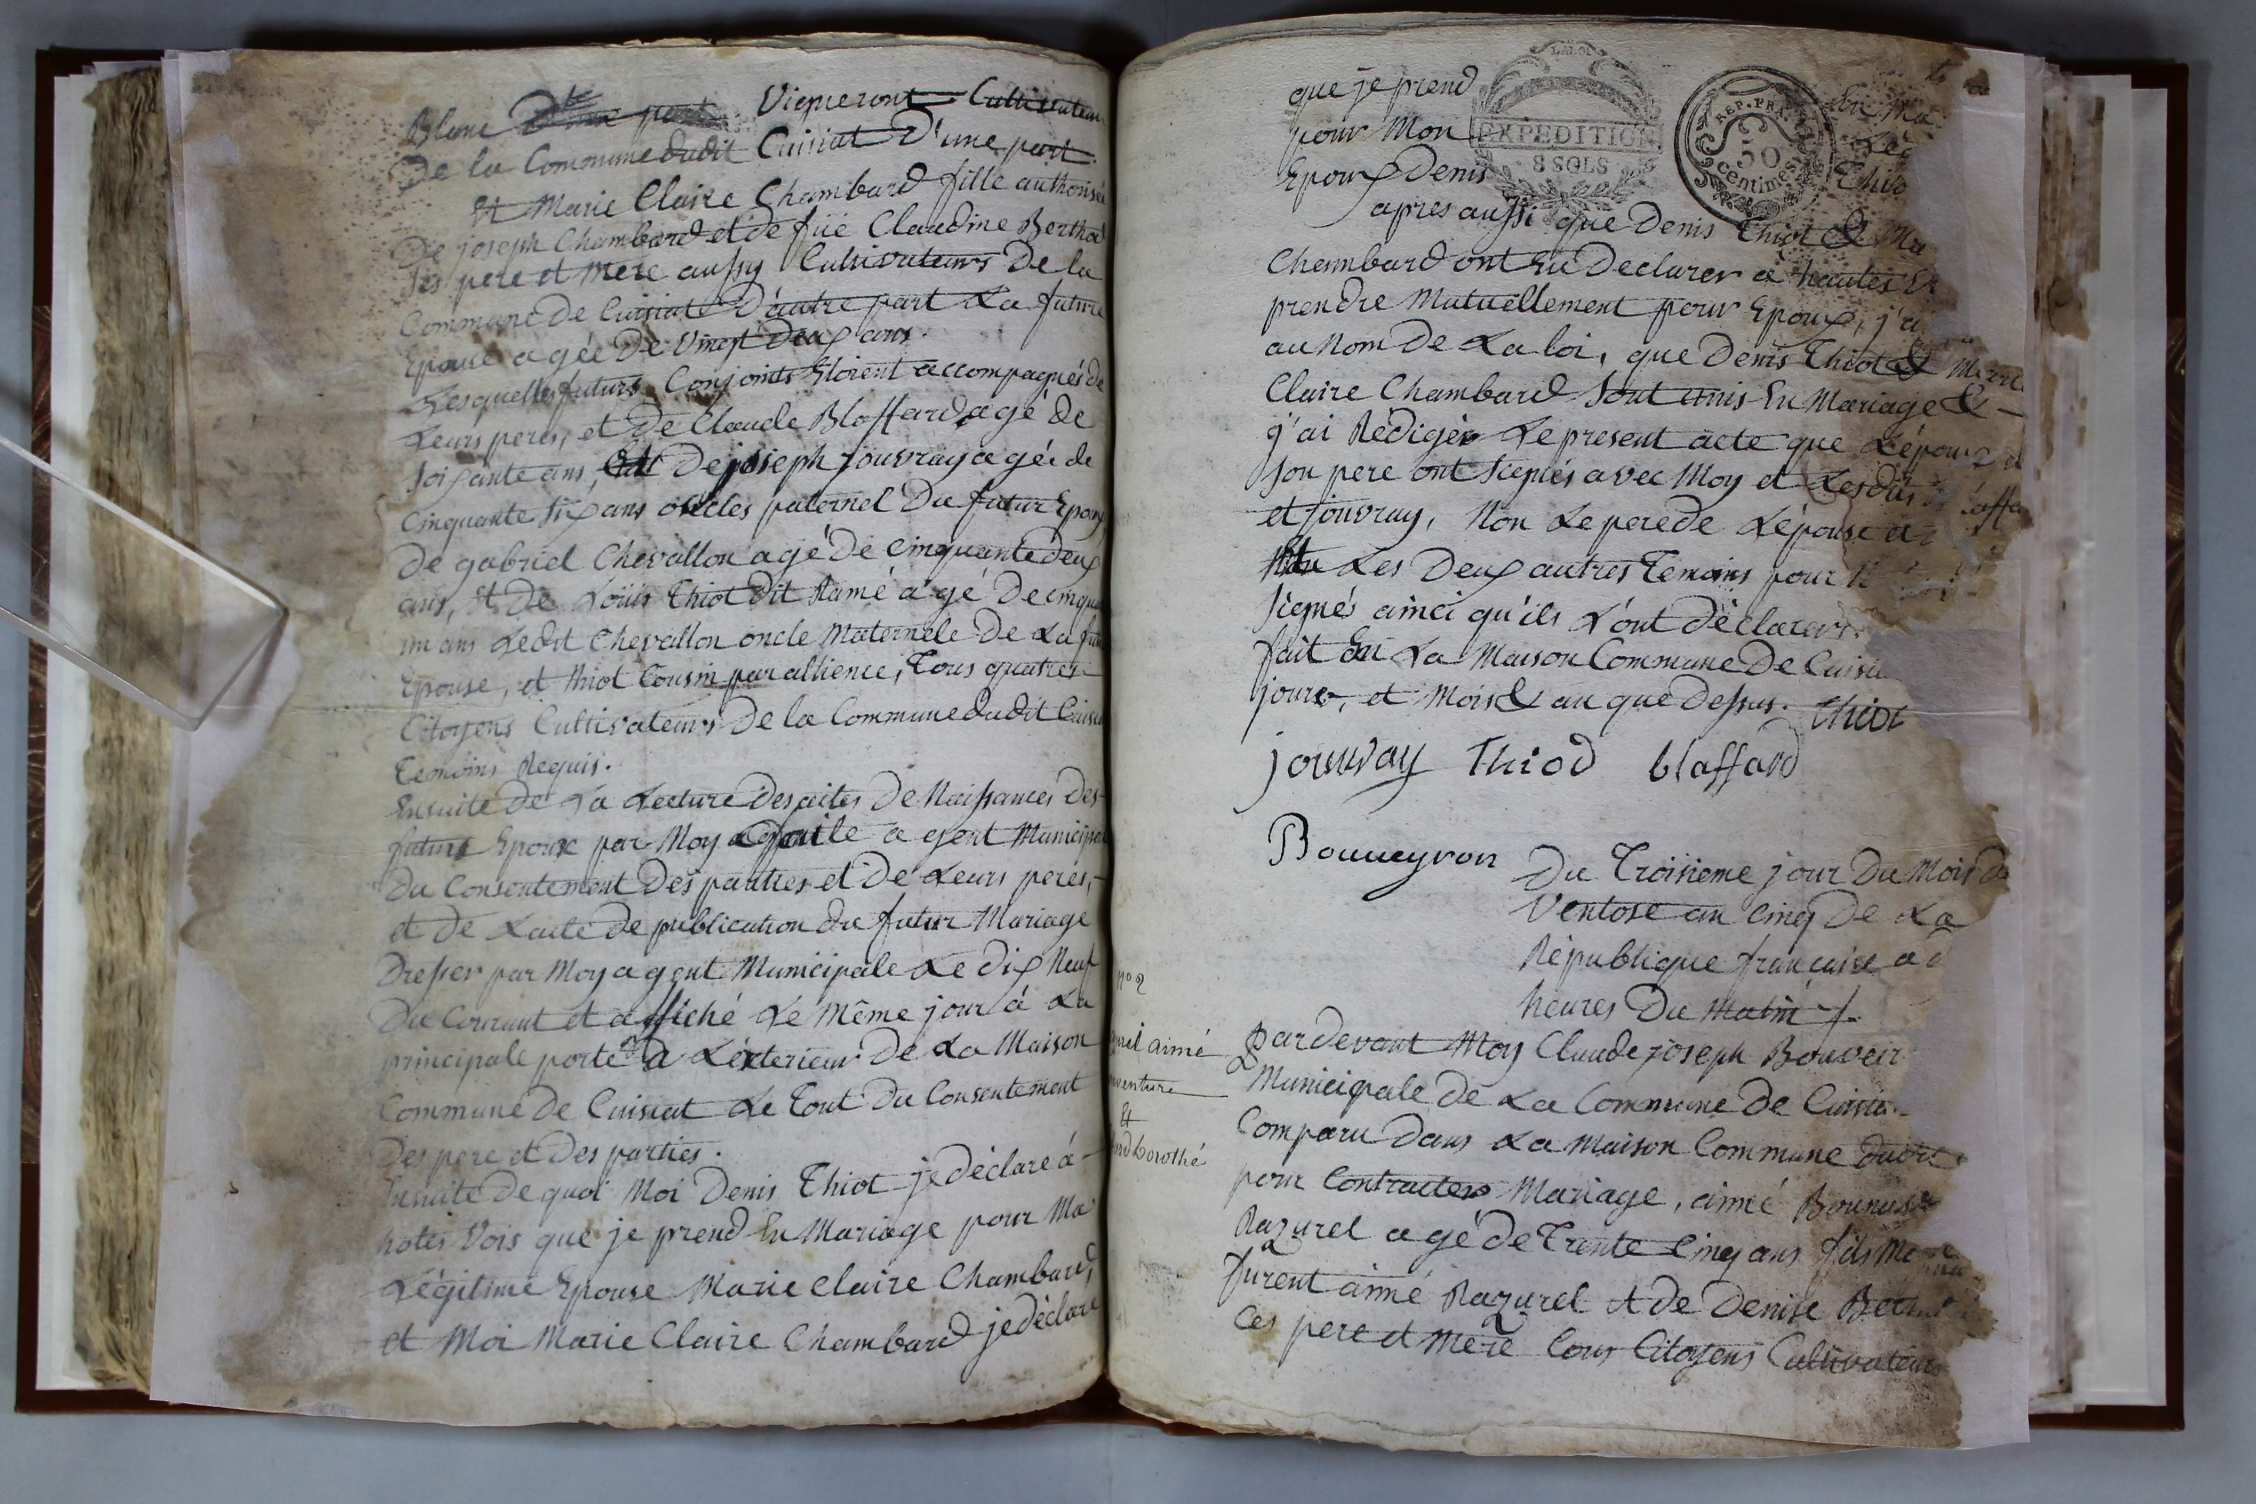 Blanc Vigneront Cultivateur
De la Commune dudit Cuisiat D'une part.
Et Marie Claire Chambard fille authorisée
De joseph Chambard et de füe Claudine Berthod
Ses pere et mere aussy Cultivateurs De la
Commune de Cuisiat D'autre part La future
Epouse agée De vingt deux ans.
Lesquelles futurs Conjoints Etoient accompagnés de
Leurs peres, et De Claude Blaffard agé de
soixante ans, De joseph jouvray agée de
cinquante six ans oncles paternel Du futur Epoux
De gabriel Chevallon agé De cinquante deux
ans, Et De Loüis Thiot dit Ramé agé De cinqua
un ans Ledit Chevallon oncle Maternele De La futu
Epouse, et Thiot Cousin par allience, Tous quatres
Citoyens Cultivateurs De la Commune dudit Cuisia
Temoins Requis.
Ensuite De La Lecture Des actes De Naissances Des
futurs Epoux par Moy agent Municipale
Du Consentement Des parties et De Leurs peres,
et De Lacte De publication du futur Mariage
Dresser par Moy agent Municipale Le dix Neuf
Du Courant et affiché Le Même jour à La
principale porte a Léxterieur De La Maison
Commune De Cuisiat Le Tout Du Consentement
Des pere et Des parties.
Ensuite De quoi Moi Denis Thiot je déclare à
hotes Vois que je prend En Mariage pour Ma
Légitime Epouse Marie Claire Chambard,
et Moi Marie Claire Chambard je déclare
que je prend
pour Mon
Epoux Denis Thio
LA LOI
EXPEDITION
8 SOLS
REP. FRA.
50
centimes
apres aussi que Denis Thiot & Ma
Chambard ont Eu Declarer a hautes
prendre Mutuellement pour Epoux, j'ai
au Nom De La loi, que Denis Thiot & Marie
Claire Chambard Sont unis En Mariage &
j'ai Rédigér Le present acte que Lépoux et
Son pere ont Signés avec Moy et Lesdits Blaffa
et jouvray, Non Le pere de Lépouse
Les Deux autres Temoins pour
signés ainci qu'ils L'ont Déclarer.
fait En La Maison Commune De Cuisia
jours, et Mois & an que Dessus. Thiot
jouvray Thiod blaffard
Bouueyron
Du Troisieme jour Du Mois de
Ventose an Cinq De La
République française a
heures Du Matin
No 2
aimé
venture
Et
Dorothé
Pardevant Moy Claude joseph Bouveir
Municipale De La Commune De Cuisia
Comparu Dans La Maison Commune Dudit
pour Contracter Mariage, aimé
Razurel agé De Trente Cinq ans fils
furent aimé Razurel et de Denise
Ces pere et Mere Tous Citoyens Cultivateurs